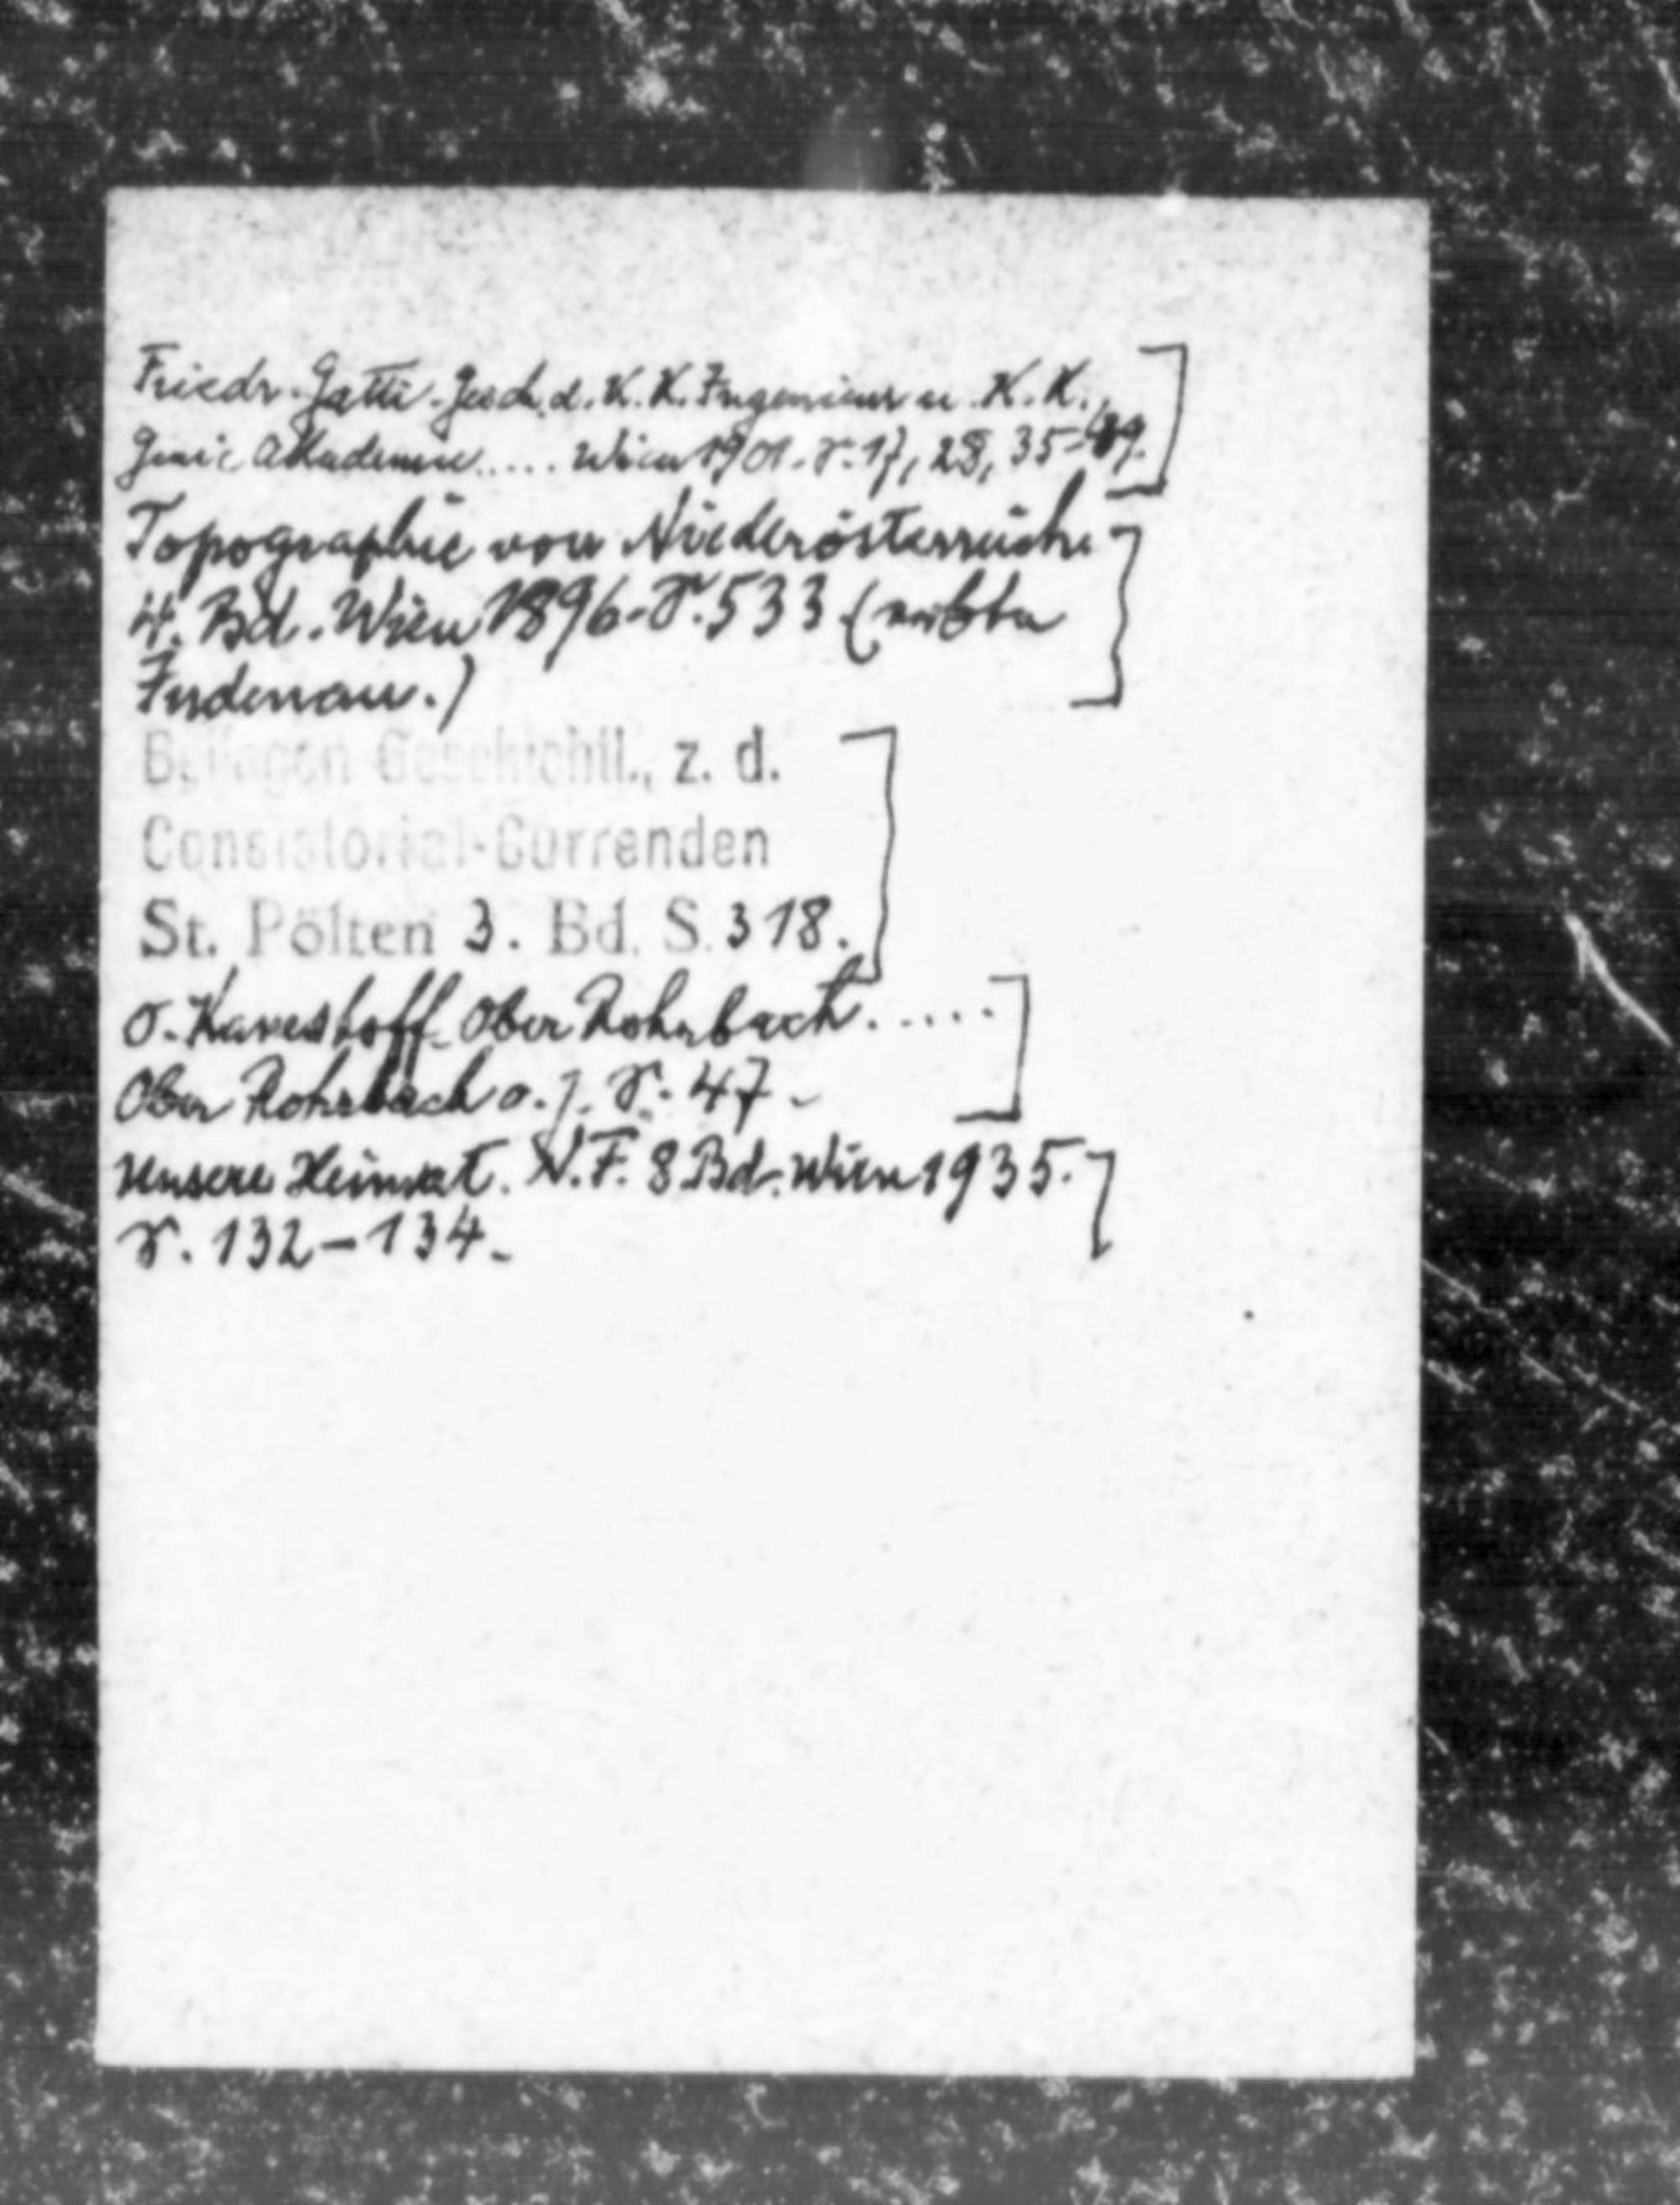 Friedr. Gatti. Gesch. d. K. K. Ingenieur u. K. K.
Genie Akademie..... Wien 1901. S. 17, 28, 35-
Topographie von Niederösterreich.
4. Bd. Wien 1896. S. 533 (
)
Beilagen Geschichtl., z. d.
Consistorial-Currenden
St. Pölten 3. Bd. S. 318.
Ober Rohrbach.....
Ober Rohrbach o. J. S. 47.
Unsere Heimat. N. F. 8 Bd. Wien 1935.
S. 132-134.